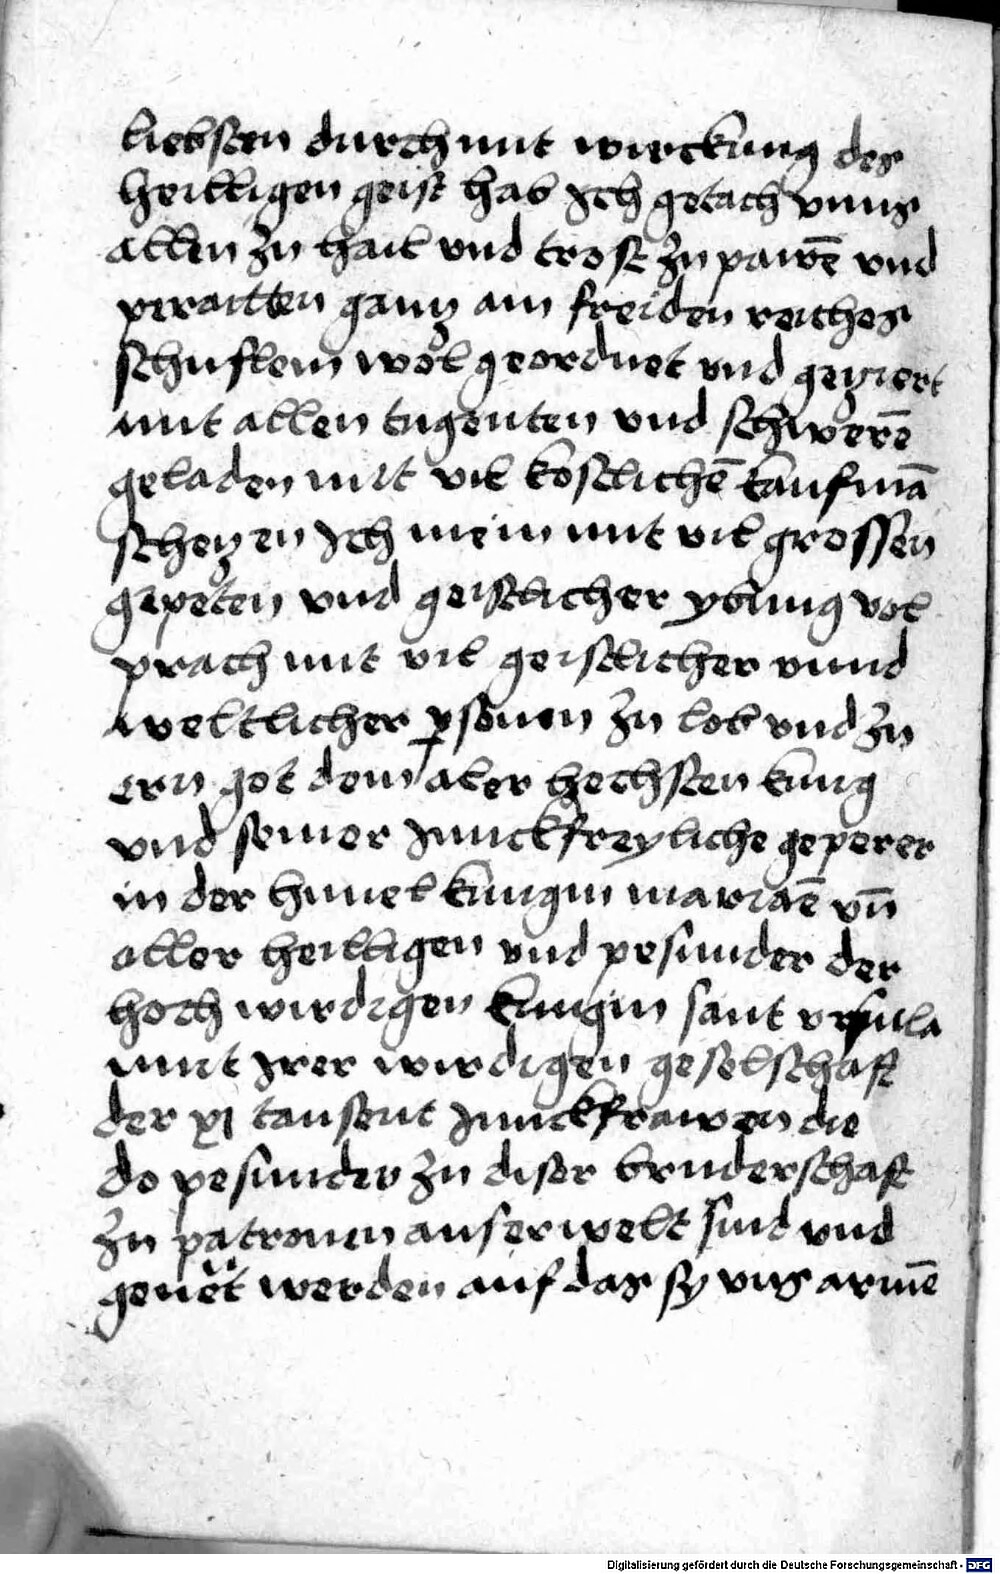 liebsten durch mit wirckung des
heilligen geist hab Ich getach vnns
allen zu hail vnd trost zu pawē vnd
peraitten gantz ain freiden reiches
schuflein wol geordnet vnd geziert
mit allen tugenten vnd schwerē
geladen mit vil kostlichē kaufmā
schetzen Ich mein mit vil grossen
gepeten vnd geistlicher ybung vol
prach mit vil geistlicher vnnd
weltlicher psonen zu lob vnd zu
ern got dem aler hechsten kunig
vnd seiner Junckfreyliche geperer
in der himel kunigin mariaē vn̄
aller heilligen vnd pesunder der
hoch wirdigen kunigin sant vrsula
mit Irer wirdigen geselschaft
der xi tausent Junckfrawen die
do pesunder zu diser bruderschaft
zu patronen auserwelt sind vnd
genēt werden auf das sy vns armē
Digitalisierung gefördert durch die Deutsche Forschungsgemeinschaft - DFG